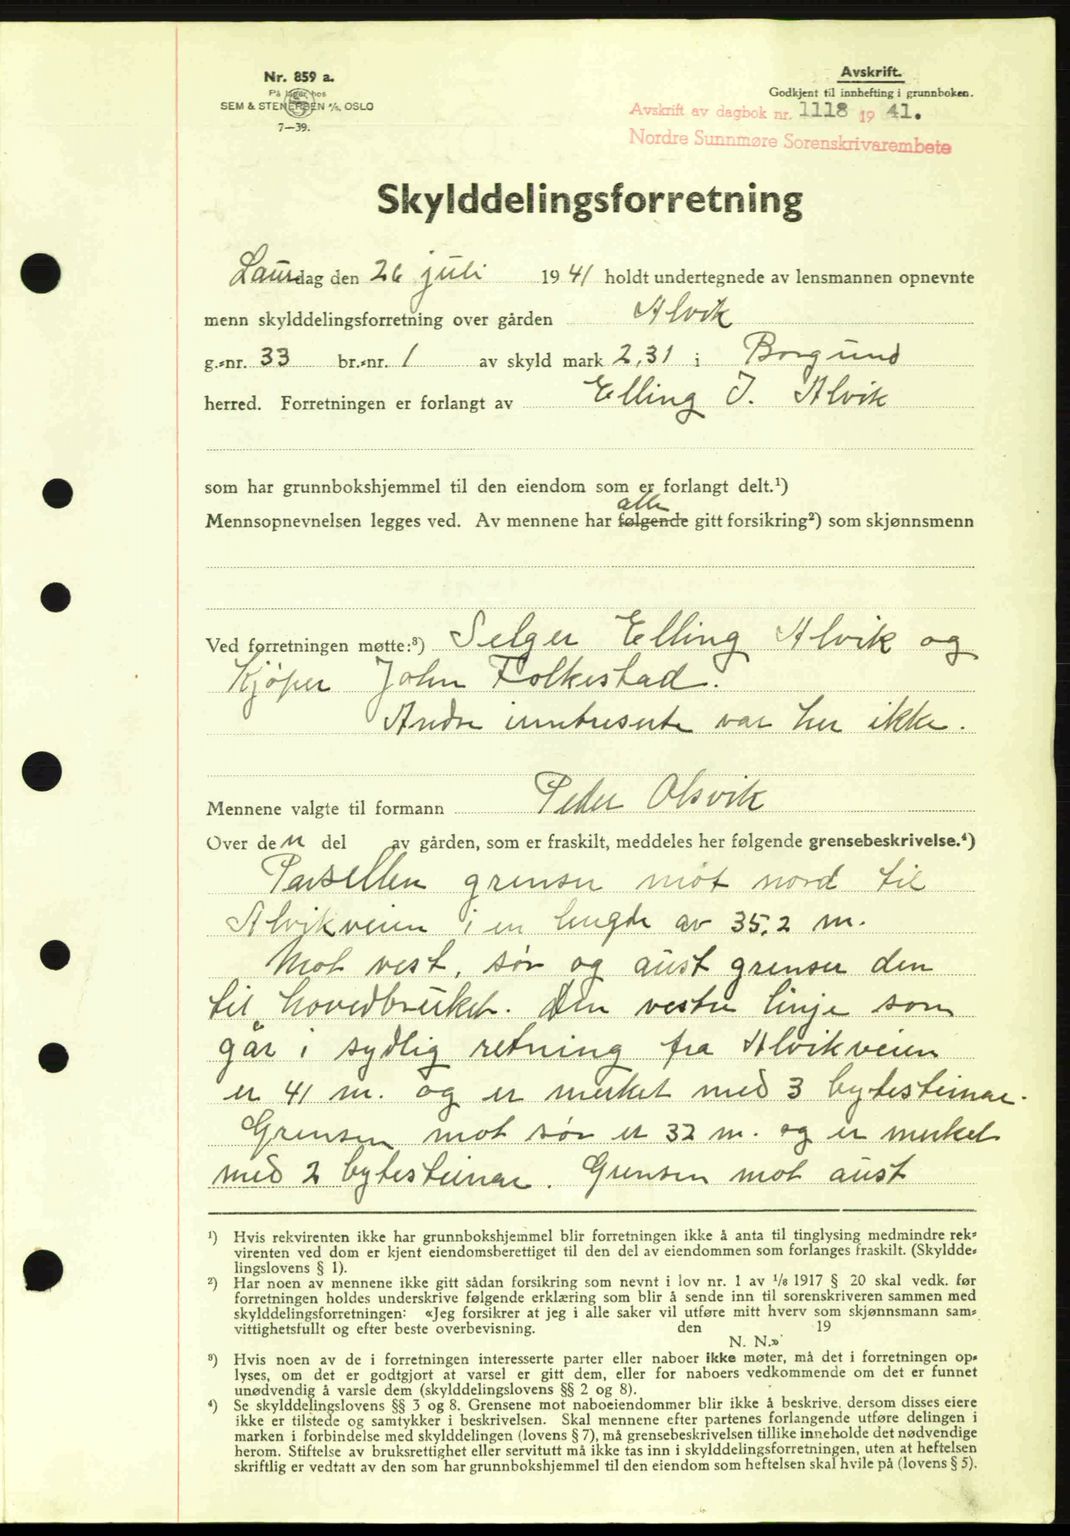 Nr. 859 a.
På lager hos
SEM & STENERSEN A/S, OSLO
7—39.
Avskrift.
Godkjent til innhefting i grunnboken.
Avskrift av dagbok nr. 1118 19 41.
Nordre Sunnmøre Sorenskrivarembete
Skylddelingsforretning
Laurdag den 26 juli 1941 holdt undertegnede av lensmannen opnevnte
menn skylddelingsforretning over gården Alvik
g.-nr. 33 br.-nr. 1 av skyld mark 2,31 i Borgund
herred. Forretningen er forlangt av Elling J. Alvik
som har grunnbokshjemmel til den eiendom som er forlangt delt.¹)
alle
Mennsopnevnelsen legges ved. Av mennene har følgende gitt forsikring²) som skjønnsmenn
Ved forretningen møtte:³) Selger Elling Alvik og
Kjøper John Folkestad.
Andre inntreserte var her ikke.
Mennene valgte til formann Peder Olsvik
Over den del av gården, som er fraskilt, meddeles her følgende grensebeskrivelse.⁴)
Parsellen grenser mot nord til
Alvikveien i en lengde av 35,2 m.
Mot vest, sør og aust grenser den
til hovedbruket. Den vestre linje som
går i sydlig retning fra Alvikveien
er 41 m. og er merket med 3 bytesteinar.
Grensen mot sør er 32 m. og er merket
med 2 bytesteinar. Grensen mot aust
¹) Hvis rekvirenten ikke har grunnbokshjemmel blir forretningen ikke å anta til tinglysing medmindre rek-
virenten ved dom er kjent eiendomsberettiget til den del av eiendommen som forlanges fraskilt. (Skyldde-
lingslovens § 1).
²) Har noen av mennene ikke gitt sådan forsikring som nevnt i lov nr. 1 av 1/8 1917 § 20 skal vedk. før
forretningen holdes underskrive følgende erklæring som blir å sende inn til sorenskriveren sammen med
skylddelingsforretningen: «Jeg forsikrer at jeg i alle saker vil utføre mitt hverv som skjønnsmann sam-
vittighetsfullt og efter beste overbevisning. den 19
N. N.»
³) Hvis noen av de i forretningen interesserte parter eller naboer ikke møter, må det i forretningen op-
lyses, om det er godtgjort at varsel er gitt dem, eller for naboers vedkommende om det er funnet
unødvendig å varsle dem (skylddelingslovens §§ 2 og 8).
⁴) Se skylddelingslovens §§ 3 og 8. Grensene mot naboeiendommer blir ikke å beskrive, dersom disses eiere
ikke er tilstede og samtykker i beskrivelsen. Skal mennene efter partenes forlangende utføre delingen i
marken i forbindelse med skylddelingen (lovens § 7), må grensebeskrivelsen tillike inneholde det nødvendige
herom. Stiftelse av bruksrettighet eller servitutt må ikke tas inn i skylddelingsforretningen, uten at heftelsen
skriftlig er vedtatt av den som har grunnbokshjemmel til den eiendom som heftelsen skal hvile på (lovens § 5).